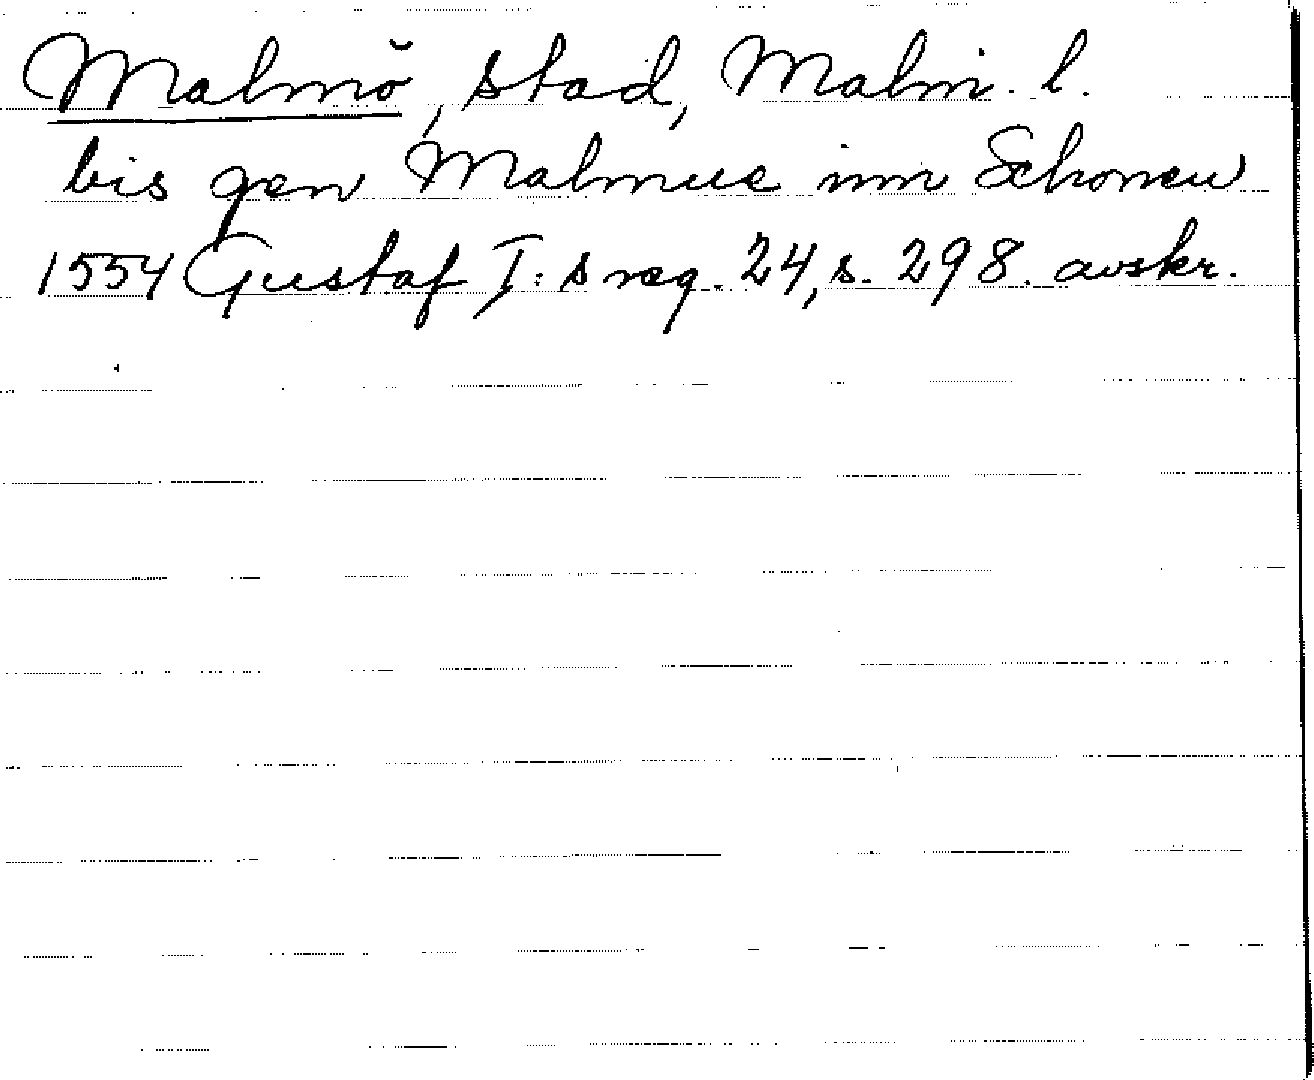 Malmö, stad, Malm. l.
bis gen Malmue inn Schonen
1554 Gustaf I:s reg. 24, s. 298. avskr.